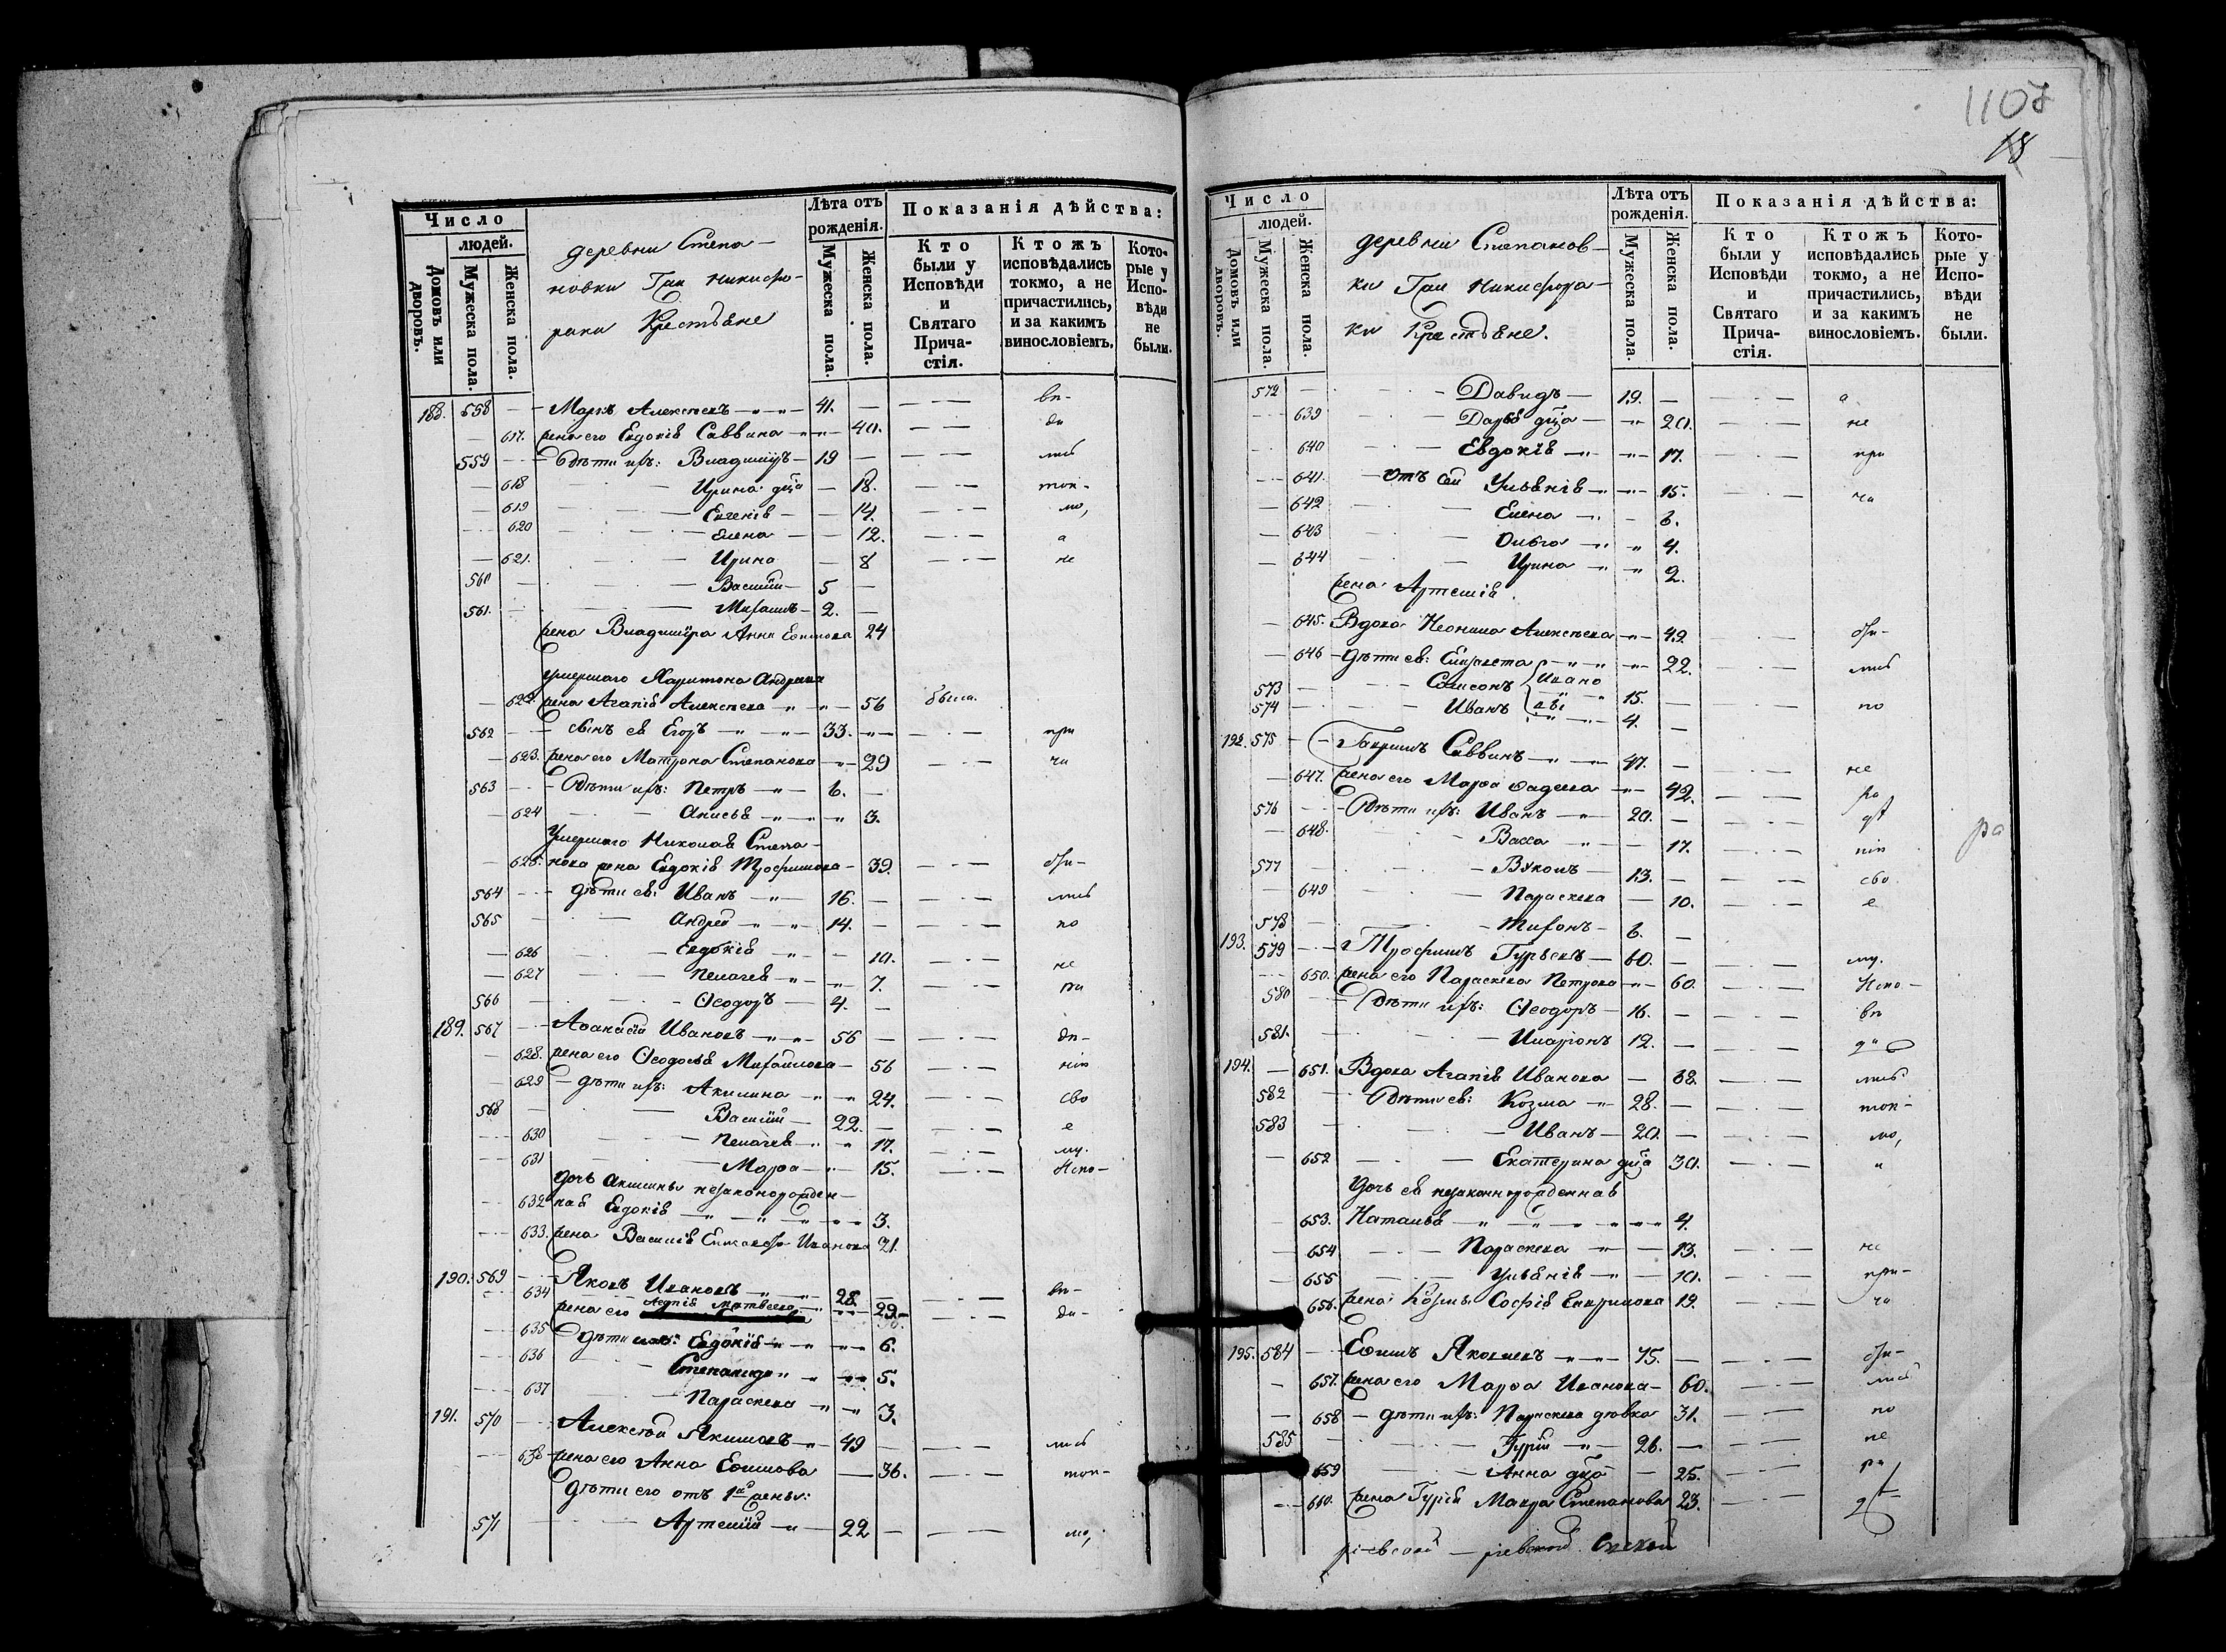 Число
людей.
Домовъ или дворовъ.
Мужеска пола.
Женска пола.
деревни Степа-
новки
Крестьяне
Лѣта отъ
рожденія.
Мужеска пола.
Женска пола.
Показанія дѣйства:
Кто
были у
Исповѣди
и
Святаго
Прича-
стія.
Ктожъ
исповѣдались
токмо, а не
причастились,
и за какимъ
винословіемъ.
Кото-
рые у
Испо-
вѣди
не
были.
188. 558 Марко Алексѣевъ 41. вп-
617. жена его Евдокія Саввина 40. ди
559 Дѣти ихъ: Владиміръ 19 лись
618 Ирина 18. ток-
619 Евгенія 14. мо,
620 Елена 12. а
621. Ирина 8 не
560 Василій 5
561. Михаилъ 2.
жена Владиміра Анна Ефимова 24
умершаго Харитона Андреева
622. жена Агапія Алексѣева 56 была
562 сынъ ея Егоръ 33. при
623. жена его Матрона Степанова 29 ча
563 Дѣти ихъ: Петръ 6.
624 Анисья 3.
Умершаго Николая Степа-
625. нова жена Евдокія Трофимова 39.
564 дѣти ея: Иванъ 16. лись
565 Андрей 14. по
626 Евдокія 10. не
627 Пелагея 7. ра
566 Ѳеодоръ 4.
189. 567 Аѳанасій Ивановъ 56 дѣ-
628. жена его Ѳеодосья Михайлова 56 нію
629 дѣти ихъ: Акилина 24. сво
568 Василій 22. е
630 Пелагея 17. му.
631 Марѳа 15. Испо-
дочь Акилины незаконорожден-
632 ная Евдокія 3.
633. жена Василія Елисавета Иванова 21.
190. 569 Яковъ Ивановъ 28. вп-
634 жена его Агапія Матвеева 29 ди-
635 Дѣти ихъ: Евдокія 6.
636 Степанида 5.
637 Параскева 3.
191. 570 Алексѣй Якимовъ 49 лись
638 жена его Анна Ефимова 36. ток-
Дѣти его отъ 1й жены:
571 Артемій 22 мо,
1107
18
Число
людей.
Домовъ или дворовъ.
Мужеска пола.
Женска пола.
деревни Степанов-
ки
Крестьяне.
Лѣта отъ
рожденія.
Мужеска пола.
Женска пола.
Показанія дѣйства:
Кто
были у
Исповѣди
и
Святаго
Прича-
стія.
Ктожъ
исповѣдались
токмо, а не
причастились,
и за какимъ
винословіемъ.
Кото-
рые у
Испо-
вѣди
не
были.
572 Давидъ 19. а
639 Дарья 20. не
640 Евдокія 17. при
641. отъ сей Ульянія 15. ча
642 Елена 6.
643 Ольга 4.
644 Ирина 2.
жена Артемія
645. Вдова Неонила Алексѣева 49.
646 Дѣти ея: Елисавета 22. лись
573 Самсонъ 15. по
574 Иванъ 4.
Ивано
вы
192. 575 Гаврилъ Саввинъ 47. не
647. жена его Марѳа Фадеева 42. ра
576 Дѣти ихъ: Иванъ 20. дѣ
648. Васса 17. нію
577 Вуколъ 13. сво
649 Параскева 10. е
578 Тихонъ 6.
193. 579 Трофимъ Гурьевъ 60. му.
650. жена его Параскева Петрова 60. Испо-
580 Дѣти ихъ: Ѳеодоръ 16. вп
581. Иларіонъ 12. ди
194. 651. Вдова Агапія Иванова 68. лись
582 Дѣти ея: Козма 28. ток-
583 Иванъ 20. мо,
652 Екатерина 30.
Дочь ея незаконнорожденная
653. Наталья 4.
654 Параскева 13. не
655 Ульянія 10. при-
656. жена Козмы Софія Гаврилова 19. ча
195. 584 Ефимъ Яковлевъ 75.
657. жена его Марѳа Иванова 60. лись
658 дѣти ихъ: Параскева дѣвка 31. по
585 Гурій 26. не
659 Анна 25. ра
660. жена Гурія Мавра Степанова 23. дѣ
ра